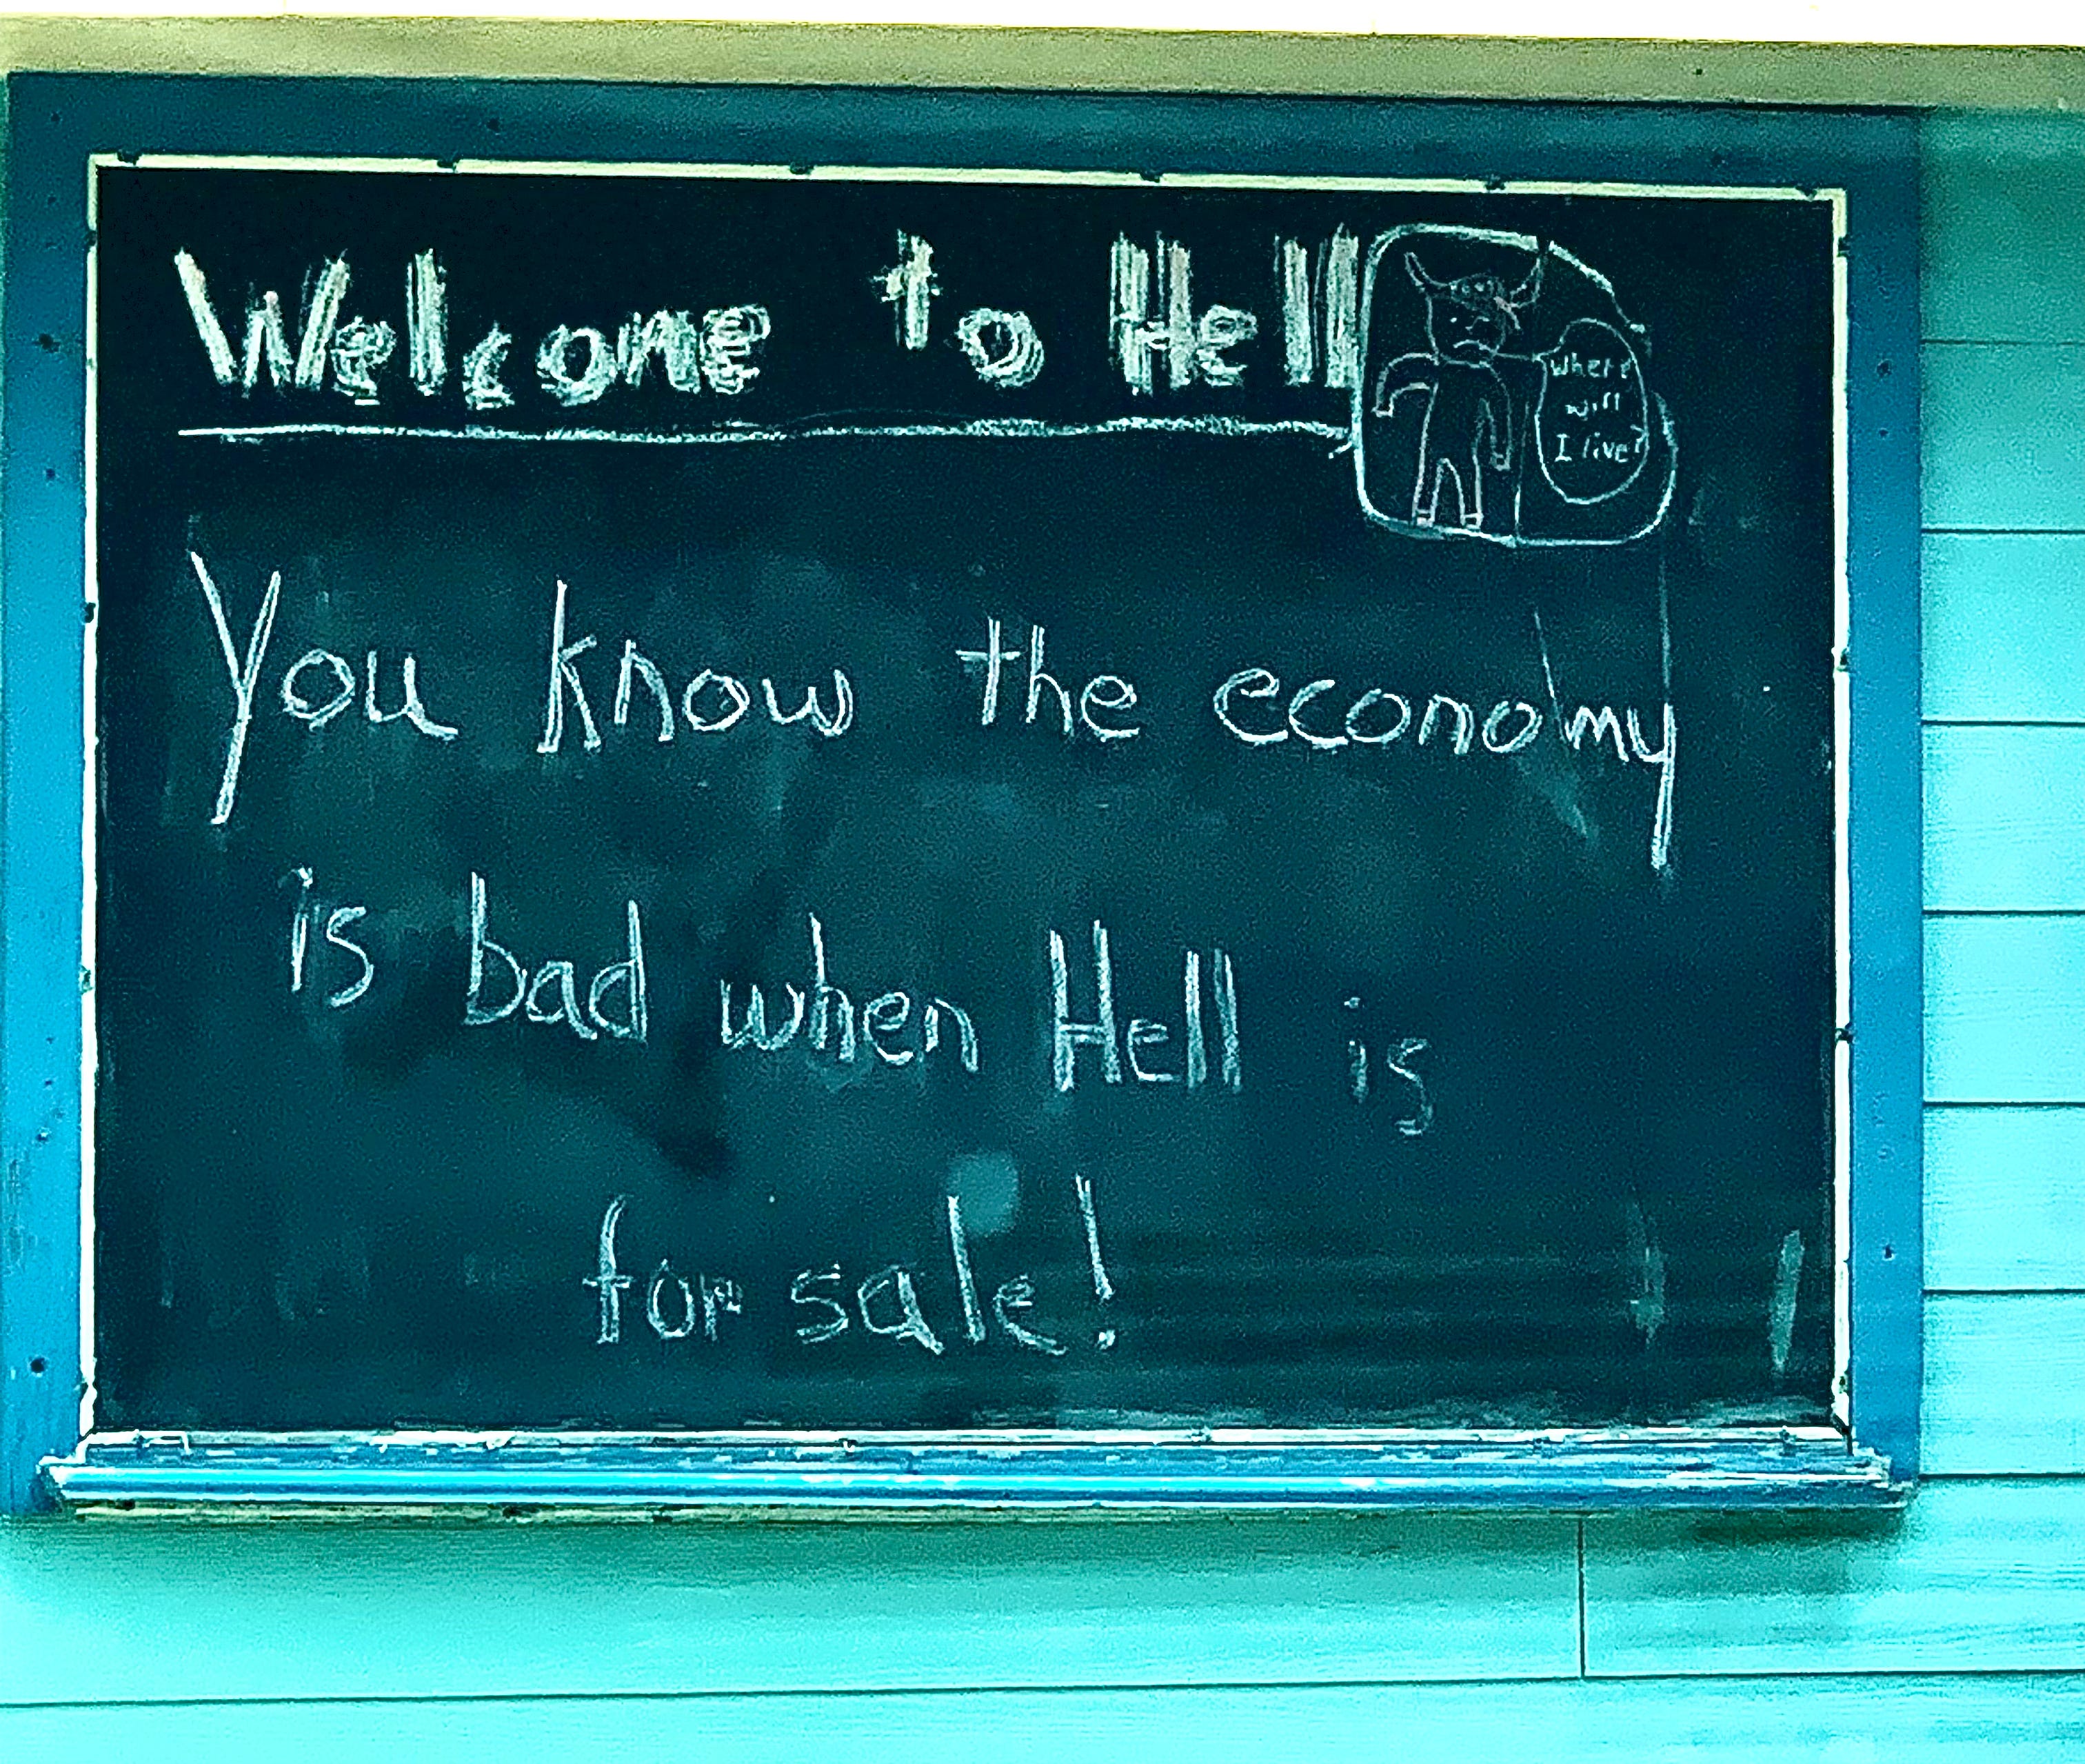 Welcome to Hell
where
will
I live?
You know the economy
is bad when Hell is
for sale!